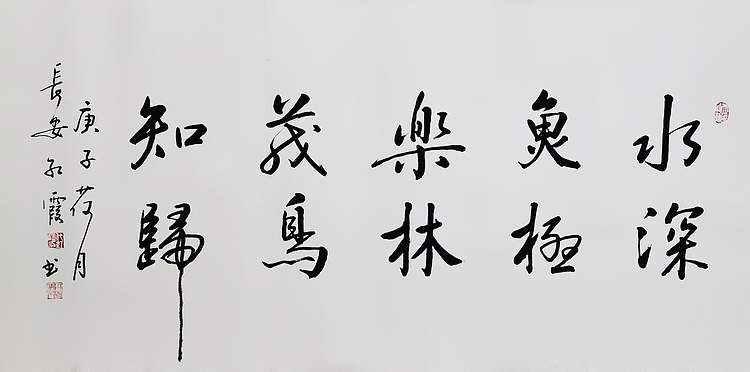 水深
魚極
樂林
茂鳥
知歸
庚子荷月
長安紅霞书